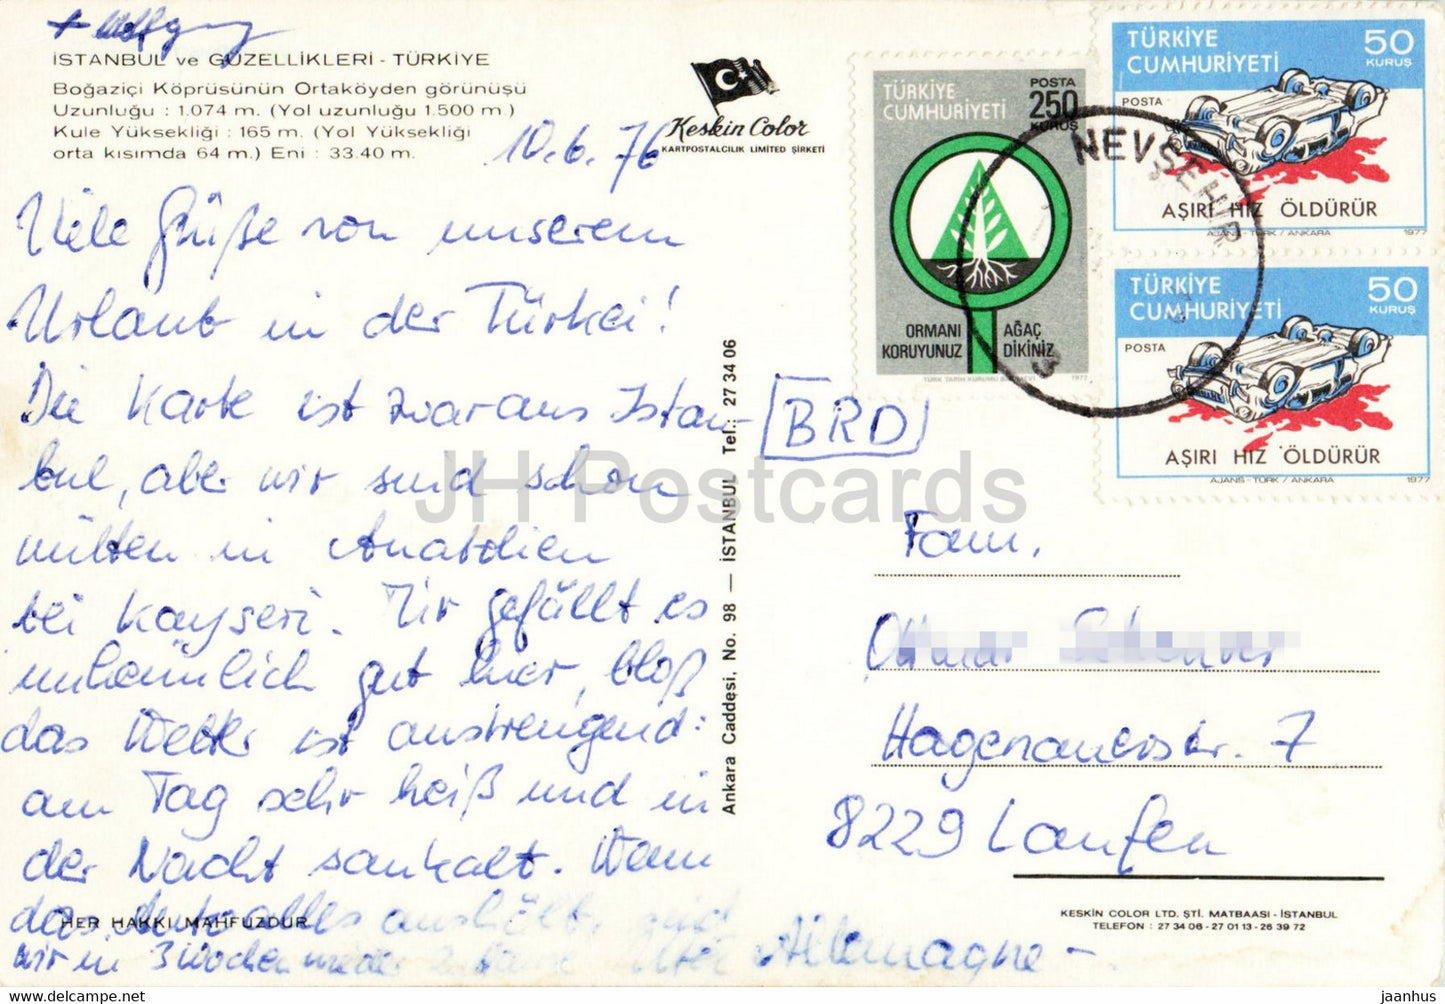 + Wolfgang
İSTANBUL ve GÜZELLİKLERİ - TÜRKİYE
Boğaziçi Köprüsünün Ortaköyden görünüşü
Uzunluğu : 1.074 m. (Yol uzunluğu 1.500 m.)
Kule Yüksekliği : 165 m. (Yol Yüksekliği
orta kısımda 64 m.) Eni : 33.40 m.
Keskin Color
KARTPOSTALCILIK LIMITED ŞİRKETİ
10.6.76
Viele Grüße von unserem
Urlaub in der Türkei!
Die Karte ist zwar aus Istan-
bul, aber wir sind schon
mitten in Anatolien
bei Kayseri. Mir gefällt es
unheimlich gut hier, bloß
das Wetter ist anstrengend:
am Tag sehr heiß und in
der Nacht saukalt. Wenn
das Auto alles aushält, sind
wir in 3 Wochen wieder
HER HAKKI MAHFUZDUR
Ankara Caddesi, No. 98 — İSTANBUL Tel.: 27 34 06
TÜRKİYE
CUMHURİYETİ
POSTA
250
KURUŞ
ORMANI
KORUYUNUZ
AĞAÇ
DİKİNİZ
1977
TÜRKİYE
CUMHURİYETİ
50
KURUŞ
POSTA
AŞIRI HIZ ÖLDÜRÜR
AJANS-TÜRK / ANKARA 1977
TÜRKİYE
CUMHURİYETİ
50
KURUŞ
POSTA
AŞIRI HIZ ÖLDÜRÜR
AJANS-TÜRK / ANKARA 1977
NEVŞEHİR
BRD
Fam.
Hagenauerstr. 7
8229 Laufen
Allemagne -
KESKİN COLOR LTD. ŞTİ. MATBAASI - İSTANBUL
TELEFON : 27 34 06 - 27 01 13 - 26 39 72
JH Postcards
hippostcard.com
jaanhus